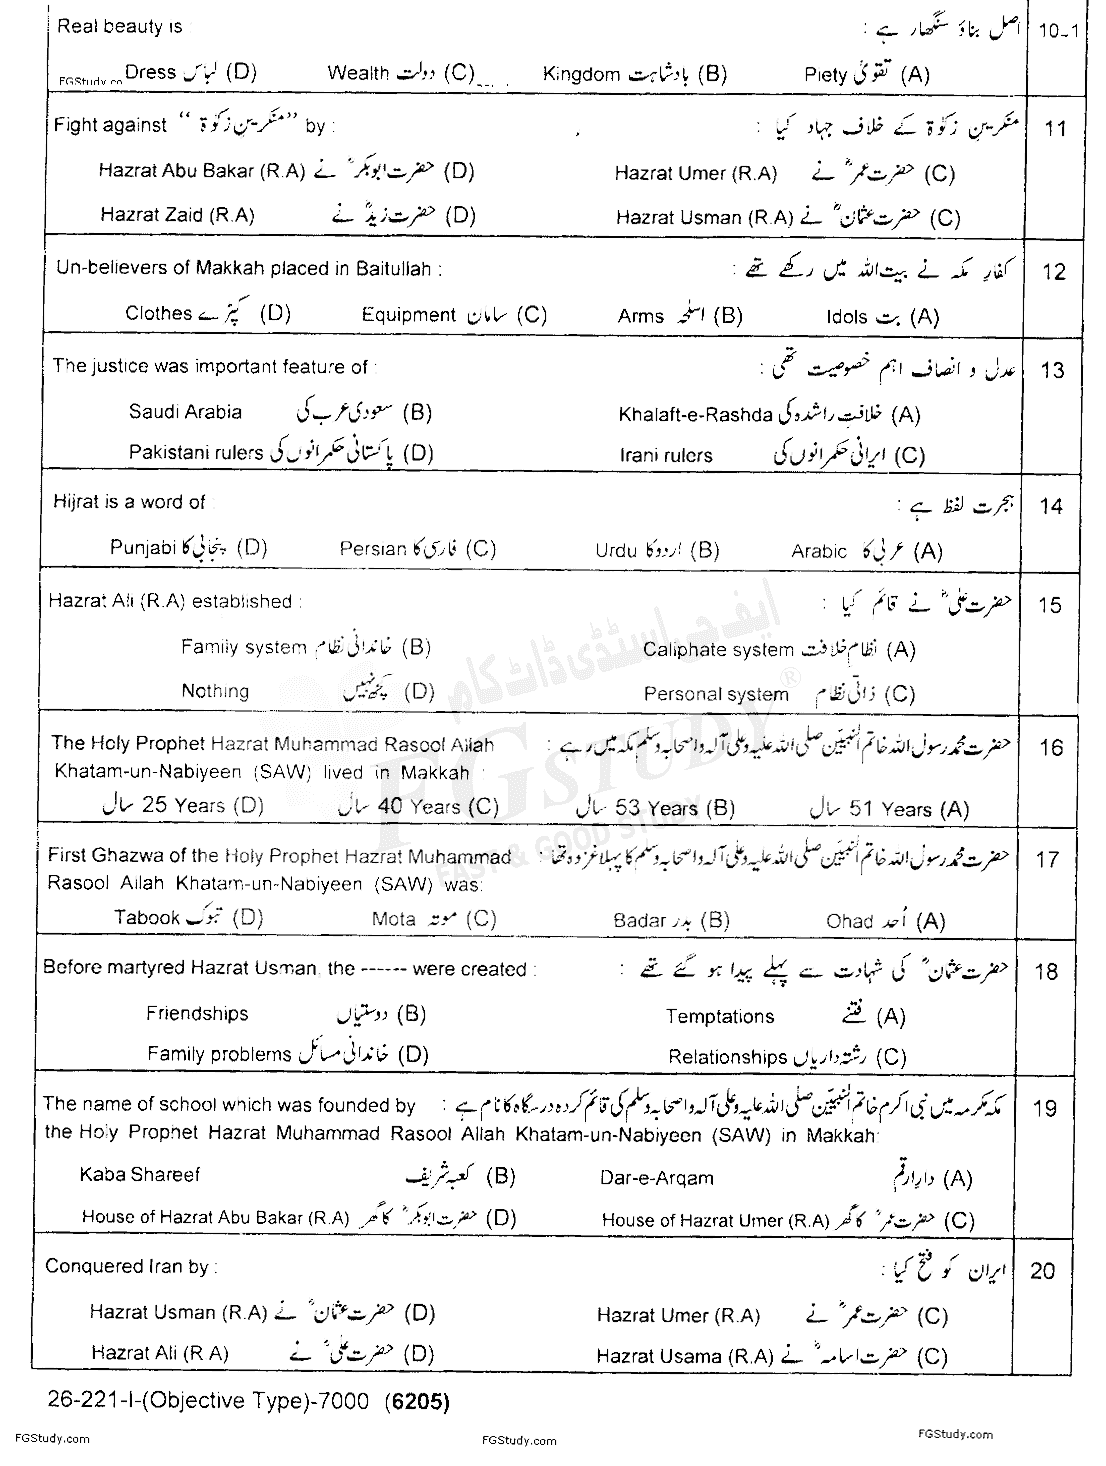 Real beauty is : اصل بناؤ سنگھار ہے : 10-1
Dress لباس (D) Wealth دولت (C) Kingdom بادشاہت (B) Piety تقویٰ (A)
Fight against "منکرین زکوٰۃ" by : منکرین زکوٰۃ کے خلاف جہاد کیا : 11
Hazrat Abu Bakar (R.A) حضرت ابوبکرؓ نے (D) Hazrat Umer (R.A) حضرت عمرؓ نے (C)
Hazrat Zaid (R.A) حضرت زیدؓ نے (D) Hazrat Usman (R.A) حضرت عثمانؓ نے (C)
Un-believers of Makkah placed in Baitullah : کفار مکہ نے بیت اللہ میں رکھے تھے : 12
Clothes کپڑے (D) Equipment سامان (C) Arms اسلحہ (B) Idols بت (A)
The justice was important feature of : عدل و انصاف اہم خصوصیت تھی : 13
Saudi Arabia سعودی عرب کی (B) Khalaft-e-Rashda خلافت راشدہ کی (A)
Pakistani rulers پاکستانی حکمرانوں کی (D) Irani rulers ایرانی حکمرانوں کی (C)
Hijrat is a word of : ہجرت لفظ ہے : 14
Punjabi پنجابی کا (D) Persian فارسی کا (C) Urdu اردو کا (B) Arabic عربی کا (A)
Hazrat Ali (R.A) established : حضرت علیؓ نے قائم کیا : 15
Family system خاندانی نظام (B) Caliphate system نظام خلافت (A)
Nothing کچھ نہیں (D) Personal system ذاتی نظام (C)
The Holy Prophet Hazrat Muhammad Rasool Allah حضرت محمد رسول اللہ خاتم النبیین صلی اللہ علیہ وعلی آلہ واصحابہ وسلم مکہ میں رہے : 16
Khatam-un-Nabiyeen (SAW) lived in Makkah :
سال 25 Years (D) سال 40 Years (C) سال 53 Years (B) سال 51 Years (A)
First Ghazwa of the Holy Prophet Hazrat Muhammad حضرت محمد رسول اللہ خاتم النبیین صلی اللہ علیہ وعلی آلہ واصحابہ وسلم کا پہلا غزوہ تھا : 17
Rasool Allah Khatam-un-Nabiyeen (SAW) was:
Tabook تبوک (D) Mota موتہ (C) Badar بدر (B) Ohad اُحد (A)
Before martyred Hazrat Usman, the ------ were created : حضرت عثمانؓ کی شہادت سے پہلے پیدا ہو گئے تھے : 18
Friendships دوستیاں (B) Temptations فتنے (A)
Family problems خاندانی مسائل (D) Relationships رشتہ داریاں (C)
The name of school which was founded by مکہ مکرمہ میں نبی اکرم خاتم النبیین صلی اللہ علیہ وعلی آلہ واصحابہ وسلم کی قائم کردہ درسگاہ کا نام ہے : 19
the Holy Prophet Hazrat Muhammad Rasool Allah Khatam-un-Nabiyeen (SAW) in Makkah:
Kaba Shareef کعبہ شریف (B) Dar-e-Arqam دار ارقم (A)
House of Hazrat Abu Bakar (R.A) حضرت ابوبکرؓ کا گھر (D) House of Hazrat Umer (R.A) حضرت عمرؓ کا گھر (C)
Conquered Iran by : ایران کو فتح کیا : 20
Hazrat Usman (R.A) حضرت عثمانؓ نے (D) Hazrat Umer (R.A) حضرت عمرؓ نے (C)
Hazrat Ali (R.A) حضرت علیؓ نے (D) Hazrat Usama (R.A) حضرت اسامہؓ نے (C)
26-221-I-(Objective Type)-7000 (6205)
FGStudy.com FGStudy.com FGStudy.com
FGStudy.co
ایف جی اسٹڈی ڈاٹ کام
FGSTUDY®
FAST & GOOD STUDY